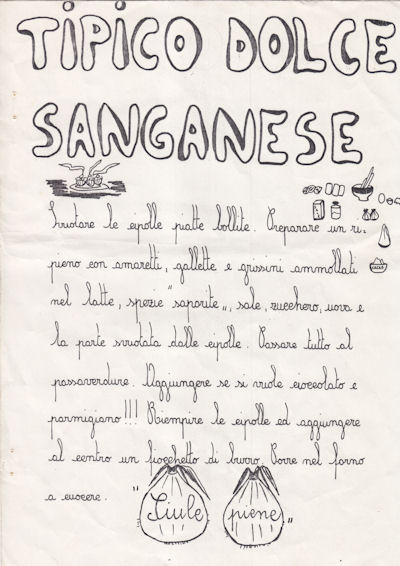 TIPICO DOLCE
SANGANESE
Svuotare le cipolle piatte bollite. Preparare un ri-
pieno con amaretti, gallette e grissini ammollati
nel latte, spezie "saporite„, sale, zucchero, uova e
la parte svuotata dalle cipolle. Passare tutto al
passaverdure. Aggiungere se si vuole cioccolato e
parmigiano!!! Riempire le cipolle ed aggiungere
al centro un fiocchetto di burro. Porre nel forno
a cuocere. "Siule piene„